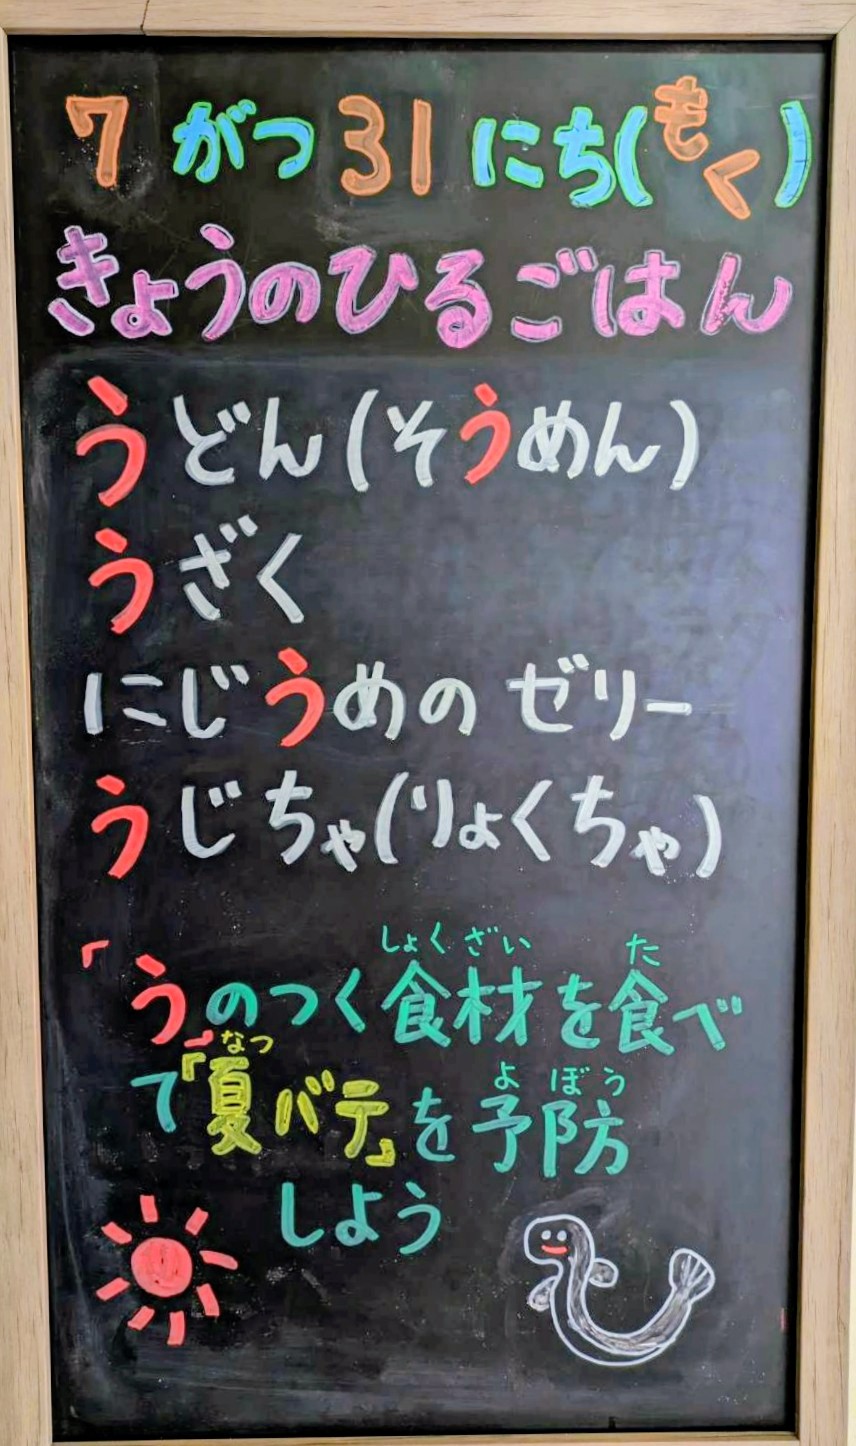 7がつ31にち(もく)
きょうのひるごはん
うどん(そうめん)
うざく
にじうめのゼリー
うじちゃ(りょくちゃ)
しょくざい た
「う」のつく食材を食べ
なつ よぼう
て『夏バテ』を予防
しよう